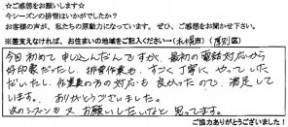 ☆ご感想をお願いします☆
今シーズンの排雪はいかがでしたか？
お客様の声が、私たちの原動力になっています。ぜひ、ご感想をお聞かせ下さい。
※差支えなければ、お住まいの地域をご記入ください→（札幌市）（厚別区）
今回初めて申し込んだんですが、最初の電話対応から
好印象だったし、排雪作業も、すごく丁寧にやっていた
だいたし、作業員の方の対応も良かったので、満足して
います。ありがとうございました。
次のシーズンも又、お願いしたいなと思ってます。
ご協力ありがとうございました！